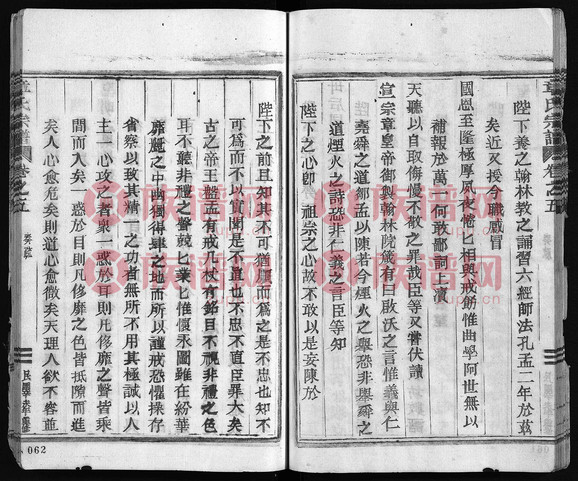 章氏宗譜
卷之五
奏疏
陛下養之翰林教之誦習六經師法孔孟二年於茲
矣近又授今職感冒
國恩至隆極厚夙夜惓匕相與戒飭惟曲學阿世無以
補報於萬一何敢鄙詞上瀆
天聽以自取侮慢不敬之罪哉臣等又嘗伏讀
宣宗章皇帝御製翰林院箴有曰啟沃之言惟義與仁
堯舜之道鄒孟以陳若今煙火之舉恐非堯舜之
道煙火之詩恐非仁義之言臣等知
陛下之心卽 祖宗之心故不敢以是妄陳於
陛下之前且知其不可猶順而爲之是不忠也知不
可爲而不以實聞是不直也不忠不直臣罪大矣
古之帝王盤盂有戒几杖有銘目不視非禮之色
耳不聽非禮之聲兢匕業匕惟懷永圖雖在紛華
靡麗之中幽獨得肆之地而所以謹戒恐懼操存
省察以致其精一之功者無所不用其極誠以人
主一心攻之者衆一惑於耳則凡侈靡之聲皆乘
間而入矣一惑於目則凡侈靡之色皆抵隙而進
矣人心愈危矣則道心愈微矣天理人欲不容並
章氏宗譜
卷之五
奏疏
062
族谱网
zupu.cn
族谱网
zupu.cn
族谱网
zupu.cn
族谱网
zupu.cn